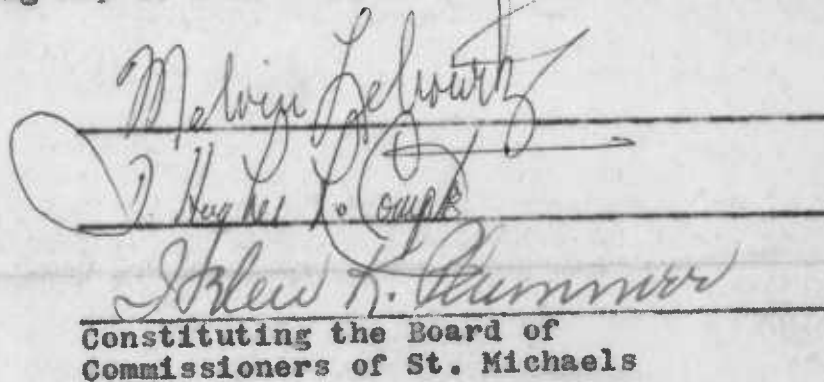 Melvin Lebowitz
Hughes
K. Plummer
Constituting the Board of
Commissioners of St. Michaels